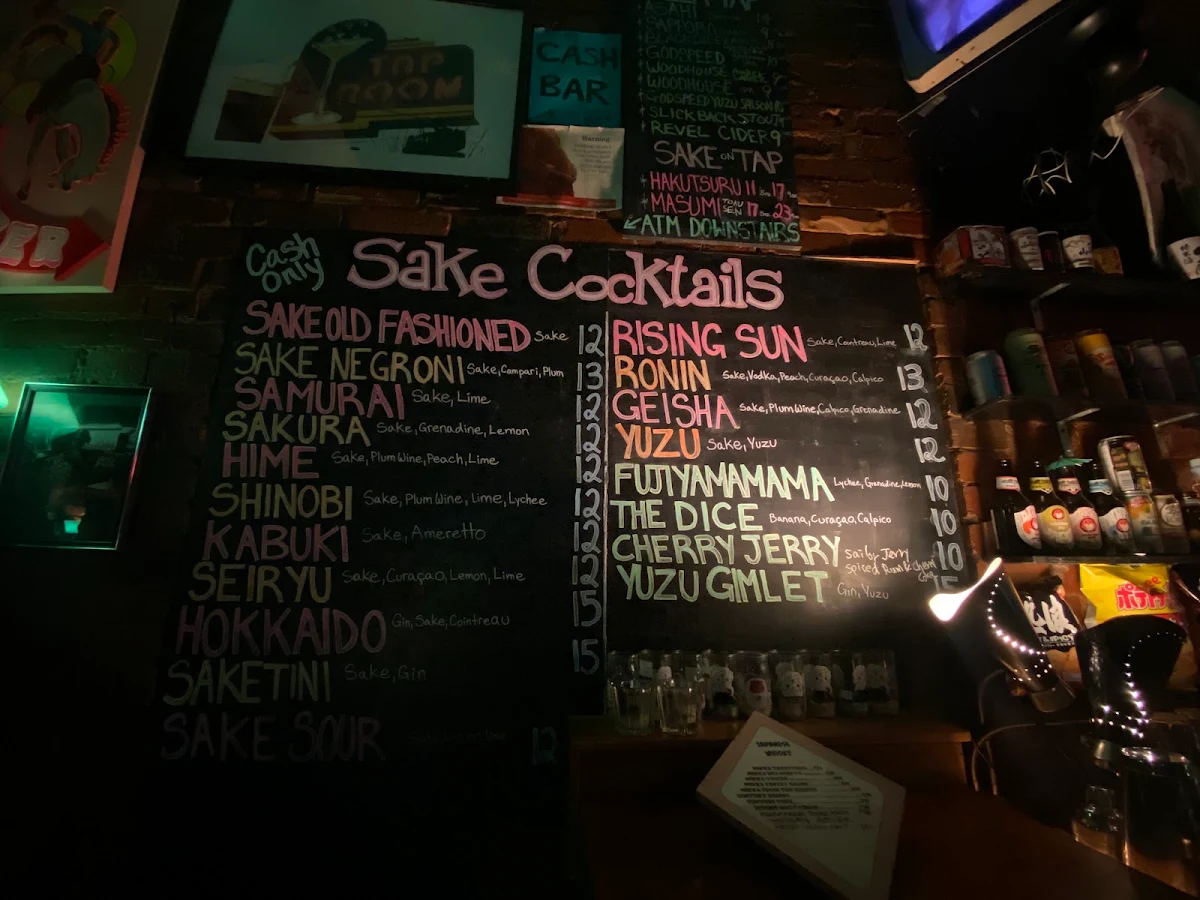 TAP
ROOM
CASH
BAR
Warning
ER
ASAHI
SAPPORO 9
GODSPEED
WOODHOUSE
WOODHOUSE 9
GODSPEED YUZU SAISON
SLICK BACK STOUT
REVEL CIDER 9
SAKE ON TAP
HAKUTSURU 11 5oz. 17 9oz
MASUMI 17 5oz. 23
ATM DOWNSTAIRS
Cash
Only
Sake Cocktails
SAKE OLD FASHIONED Sake 12
SAKE NEGRONI Sake, Campari, Plum 13
SAMURAI Sake, Lime 12
SAKURA Sake, Grenadine, Lemon 12
HIME Sake, Plum Wine, Peach, Lime 12
SHINOBI Sake, Plum Wine, Lime, Lychee 12
KABUKI Sake, Ameretto 12
SEIRYU Sake, Curaçao, Lemon, Lime 12
HOKKAIDO Gin, Sake, Cointreau 15
SAKETINI Sake, Gin 15
SAKE SOUR 12
RISING SUN Sake, Cointreau, Lime 12
RONIN Sake, Vodka, Peach, Curaçao, Calpico 13
GEISHA Sake, Plum Wine, Calpico, Grenadine 12
YUZU Sake, Yuzu 12
FUJIYAMAMAMA Lychee, Grenadine, Lemon 10
THE DICE Banana, Curaçao, Calpico 10
CHERRY JERRY Sailor Jerry 10
Spiced Rum & Cherry
Coke
YUZU GIMLET Gin, Yuzu 15
JAPANESE
WHISKY